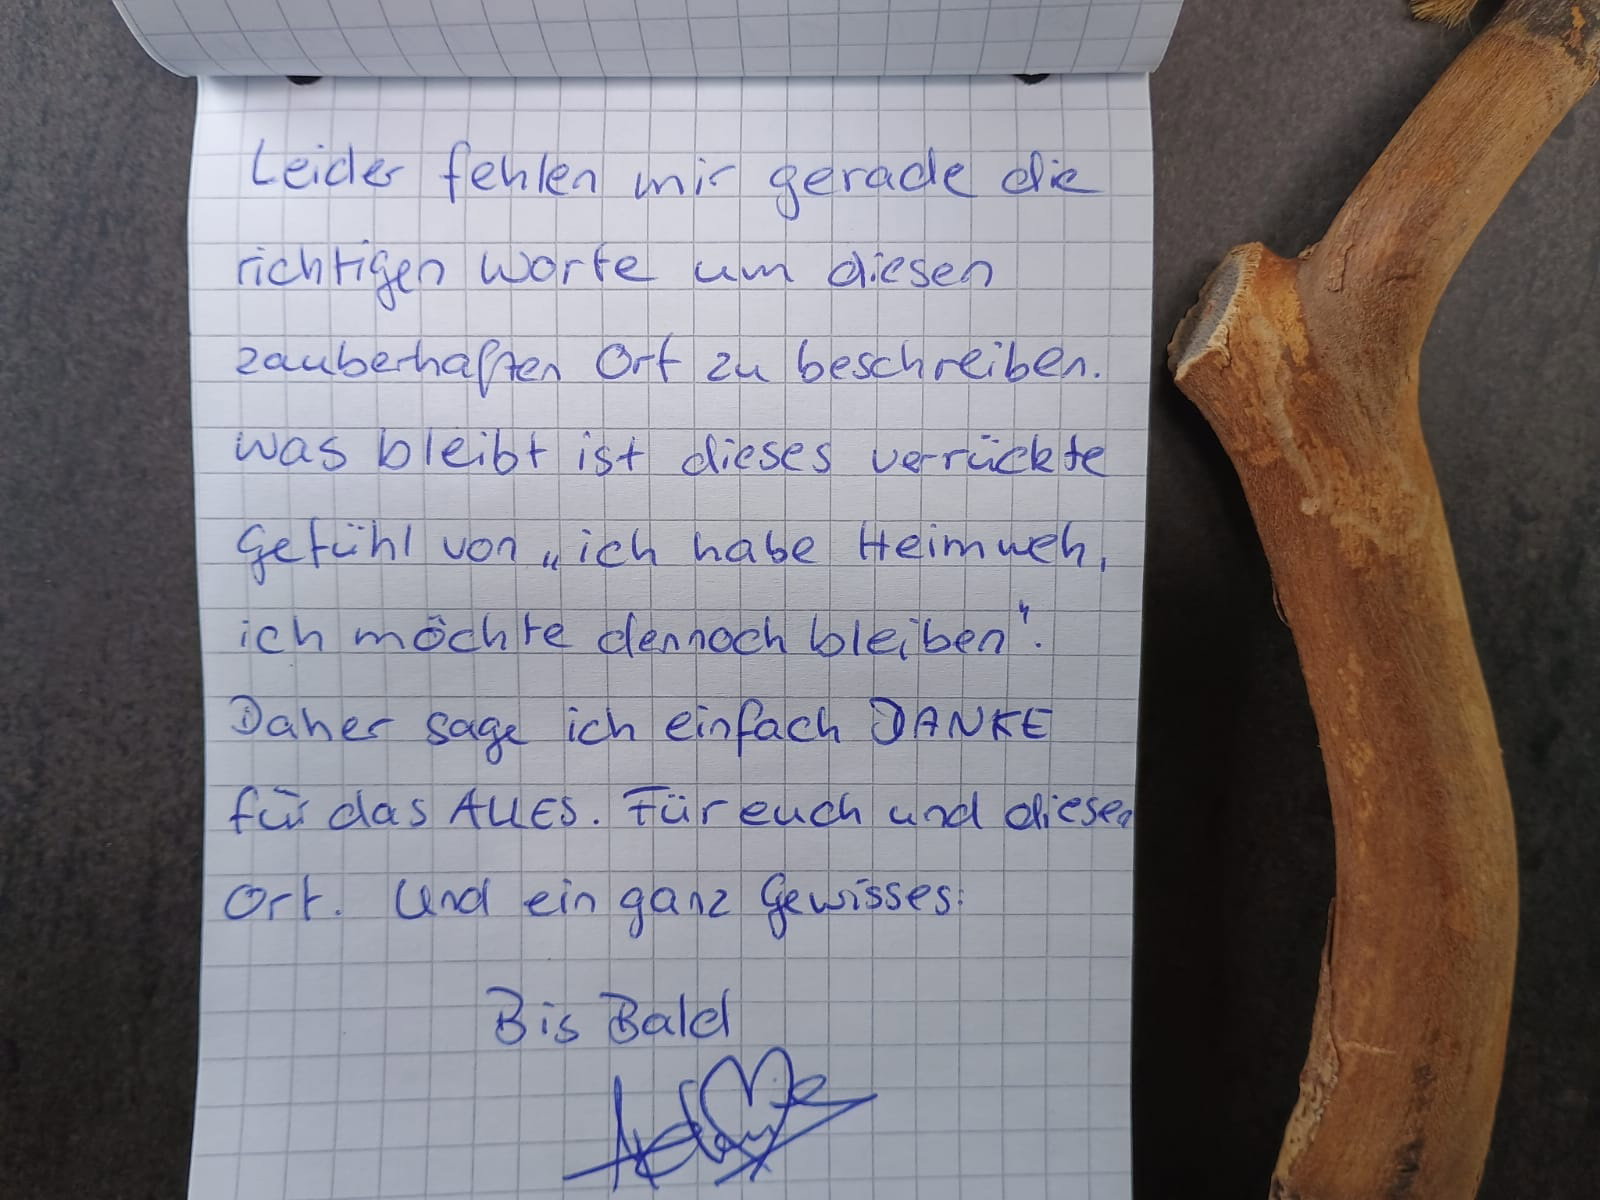 Leider fehlen mir gerade die
richtigen Worte um diesen
zauberhaften Ort zu beschreiben.
Was bleibt ist dieses verrückte
Gefühl von „ich habe Heimweh,
ich möchte dennoch bleiben".
Daher sage ich einfach DANKE
für das ALLES. Für euch und diesen
Ort. Und ein ganz Gewisses:
Bis Bald